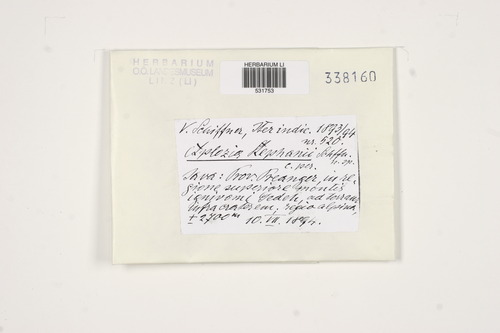 HERBARIUM
O.Ö. LANDESMUSEUM
LINZ (LI)
HERBARIUM LI
531753
338160
V. Schiffner, Iter indic. 1893/94
nr. 520.
Aplozia Stephanii Schffn.
n. sp.
c. per.
Java: Prov. Preanger, in re-
gione superiore montis
ignivomi Gedeh, ad terram
infra craterem. regio alpina,
± 2700 m 10. VII. 1894.